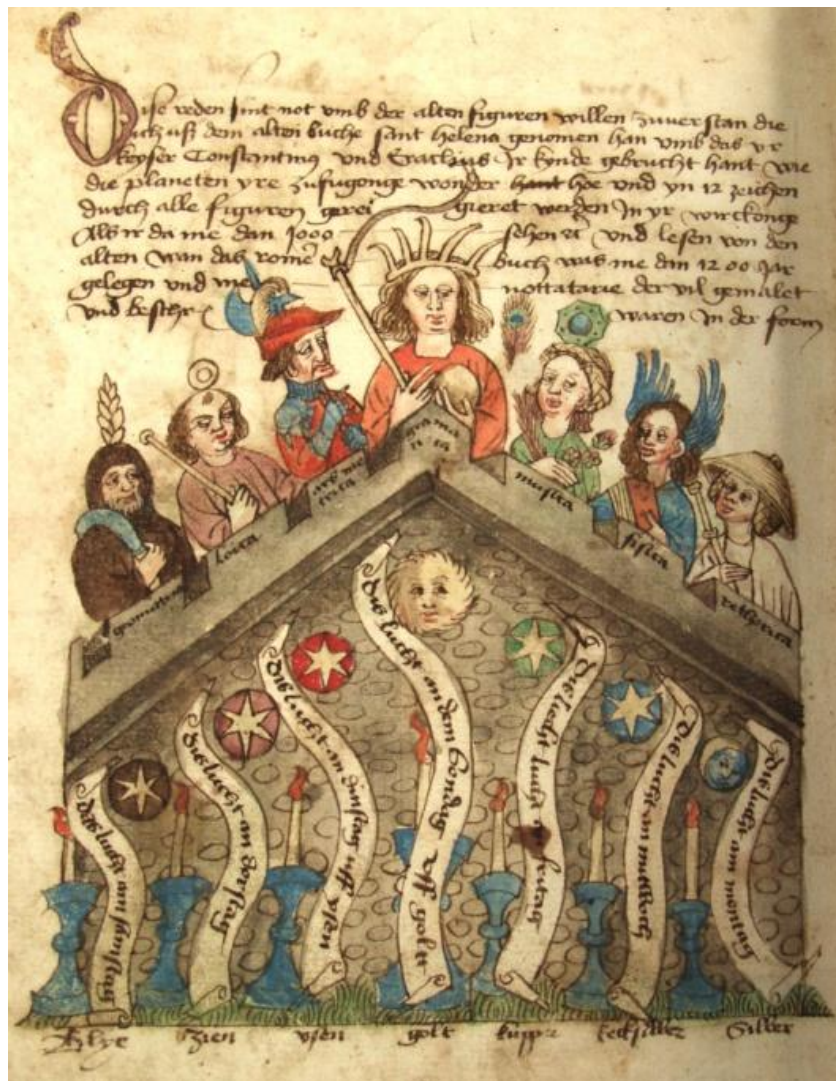 Dise reden sint not umb der alten figuren willen zuverstan die
ich uß dem alten buche sant helena genomen han umb das yr
keyser Constantinus und Eraclius Ir kynde gebrucht hant wie
die planeten yre zufugonge wonder hant hoe und yn 12 zeichen
durch alle figuren gerei gieret werden In yr wirckonge
Als ir da me dan 1000 sehen und lesen von den
alten wan das rome buch was me dan 1200 Jar
gelegen und me nottatarie der vil gemalet
und beschr waren In der form
gramatica
arismetrica
musica
loica
fisica
geometria
rethorica
Das lucht am samstag
Das lucht an dorstag
Das lucht an dinstag uff ysen
Das lucht an dem sondag uff golt
Das lucht an fritag
Das lucht an mitwoch
Das lucht am montag
Blye Zien ysen golt kupper kecksilber Silber